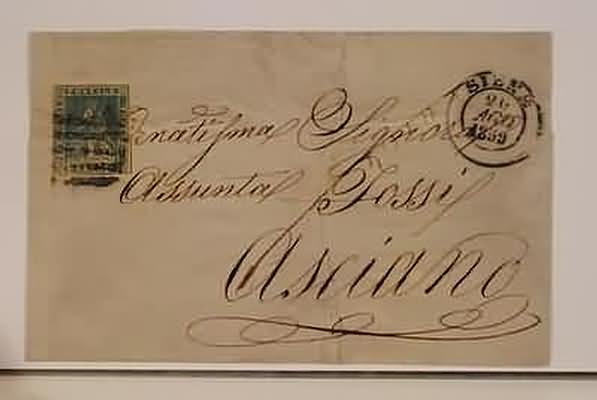 SIENA
20
AGO
1859
Ornatisma Signora
Assunta Tossi
Asciano